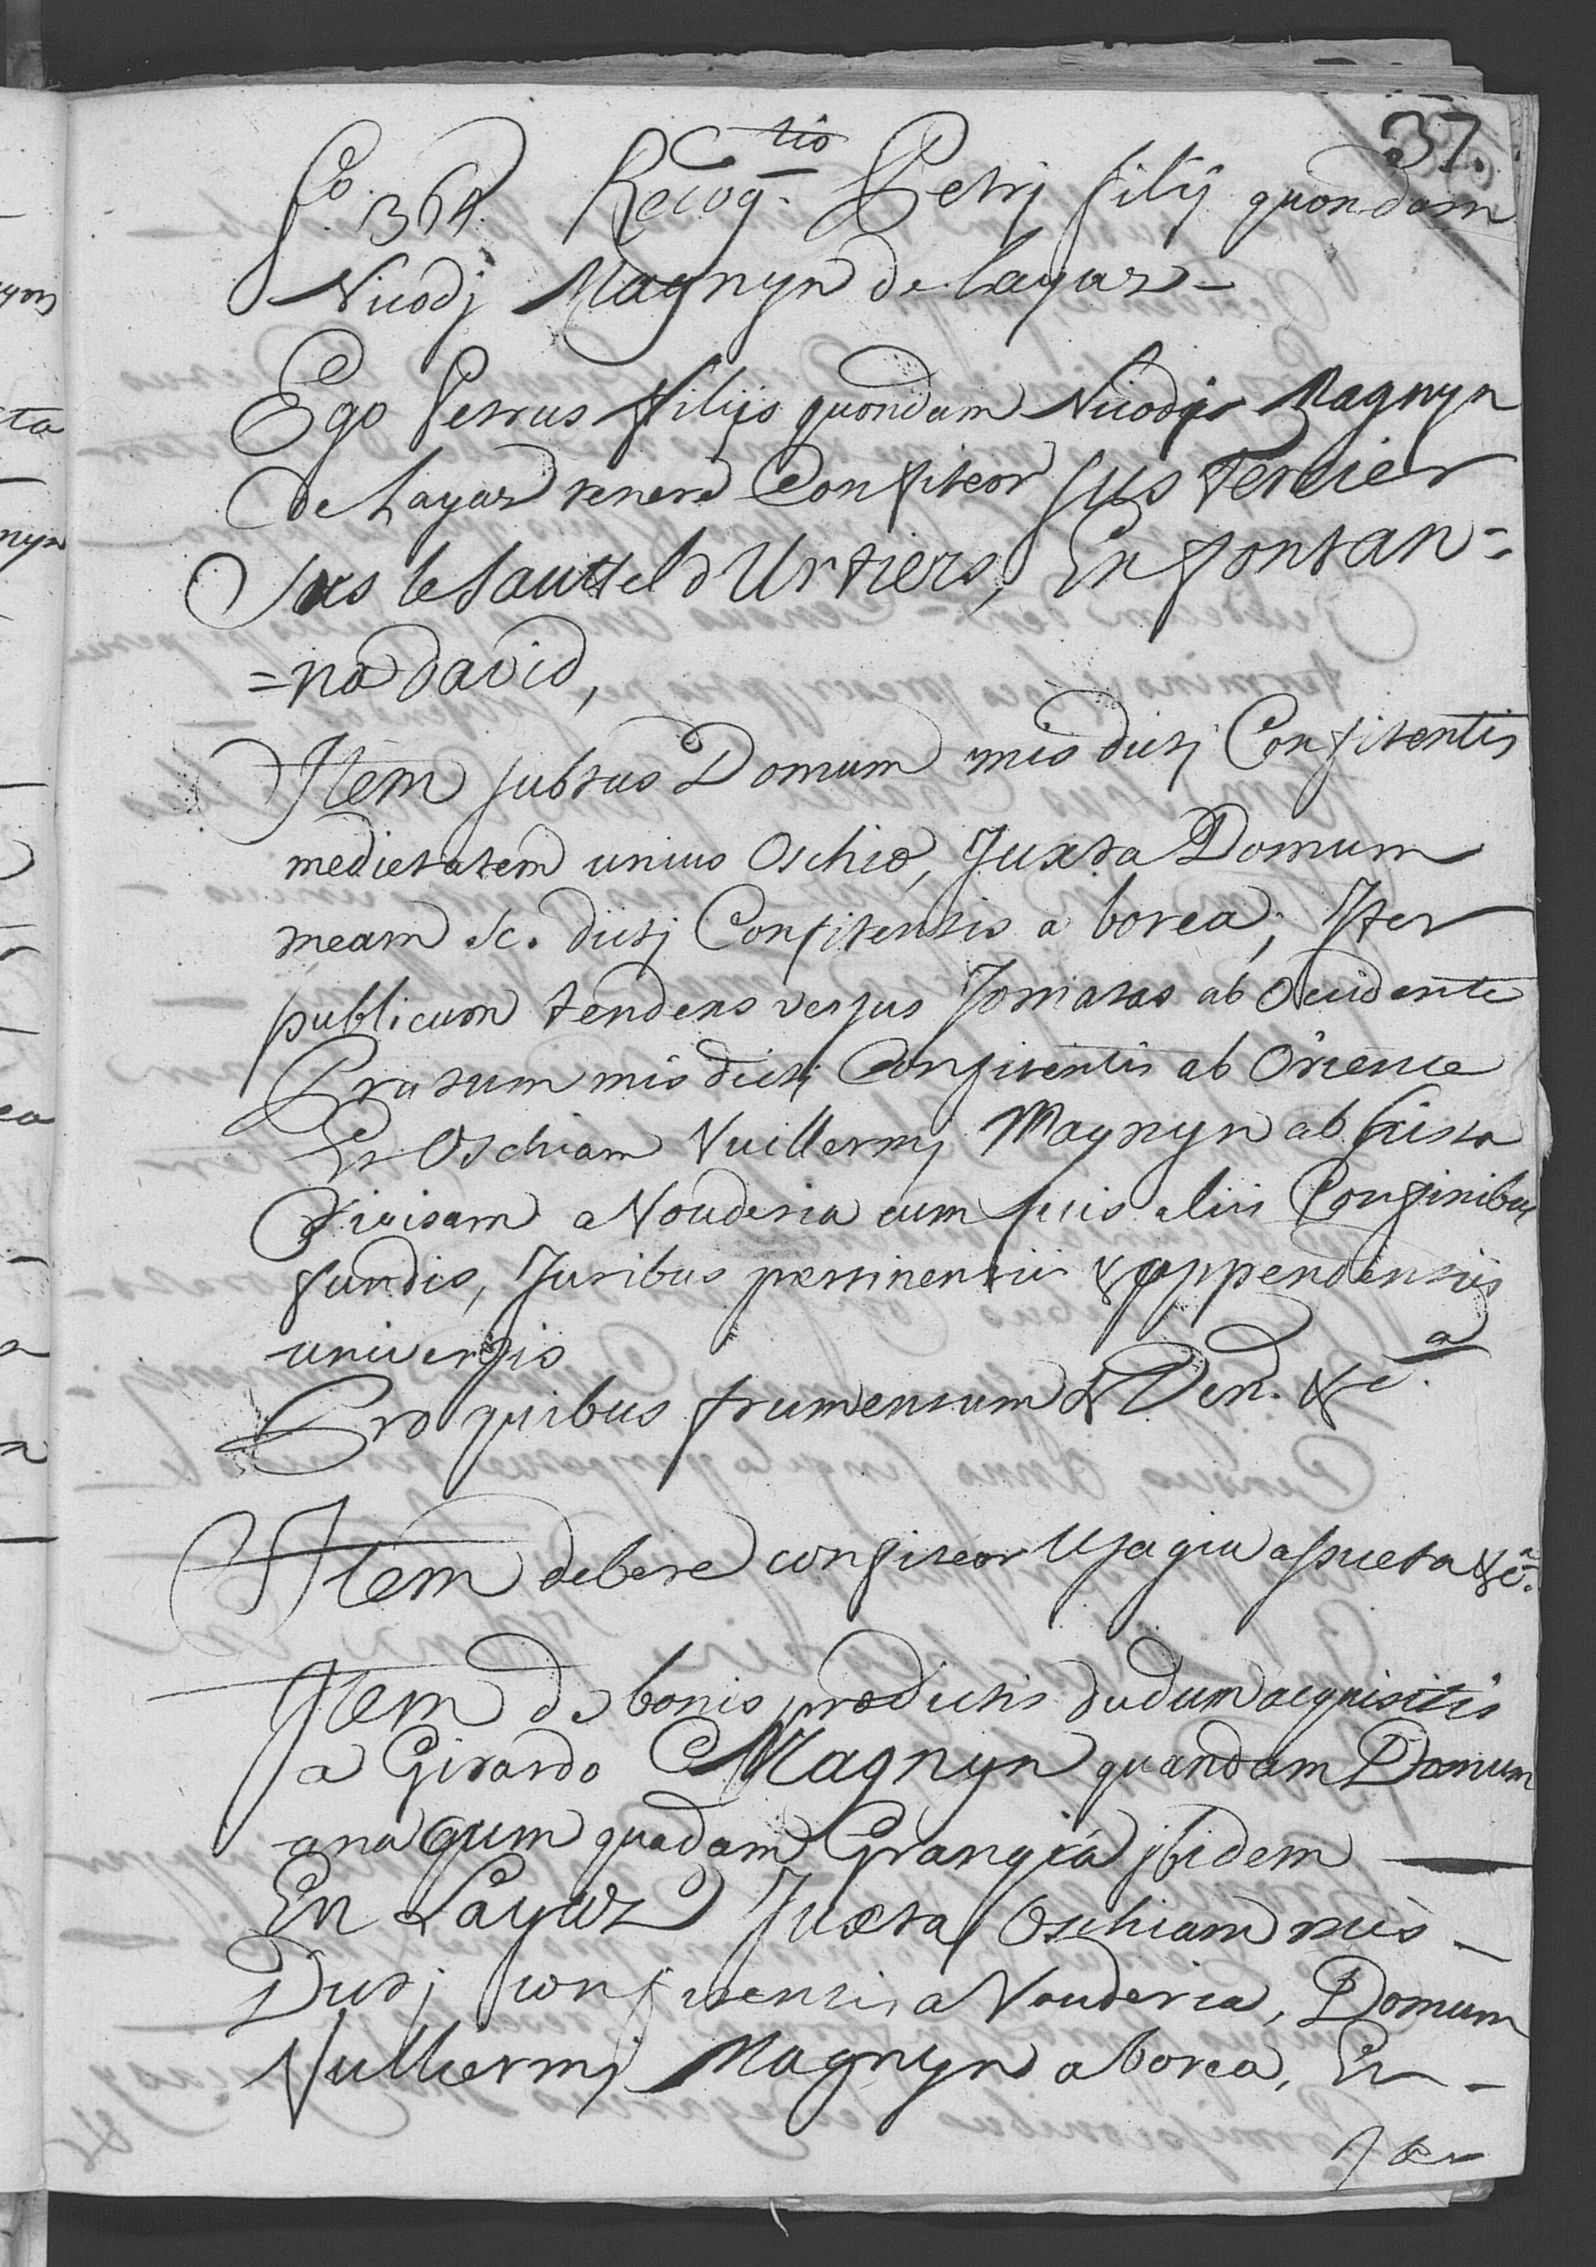 37.
fo. 364. Recog.tio Petrj filij quondam
Nicodj Magnyn de Layaz -
Ego Petrus filijs quondam Nicodj Magnyn
de Layaz tenere Confiteor sus Fercier
sus le Sauttel d'Urtiers, En fontan=
=na david,
Item subtus Domum mis dictj Confitentis
medietatem unius Oschiæ, Juxta Domum
meam sc. dictj Confitentis a borea, Iter
publicum tendens versus Jomaras ab Occidente
Pratum mis dictj Confitentis ab Oriente
Et Oschiam Vuillermj Magnyn ab Exista
Divisam a Vouderia cum suis aliis Confinibus
fundis, Juribus pertinentiis & appendentiis
universis
Pro quibus frumentum & Den. &c.a
Item debere confiteor Usagia assueta &c.a
Item de bonis prædictis dudum acquisitis
a Girardo Magnyn quandam Domum
una cum quadam Grangia jbidem
En Layaz Juxta Oschiam mis -
Dictj confitentis a Vouderia, Domum
Vulliermj Magnyn a borea, Et -
Iter